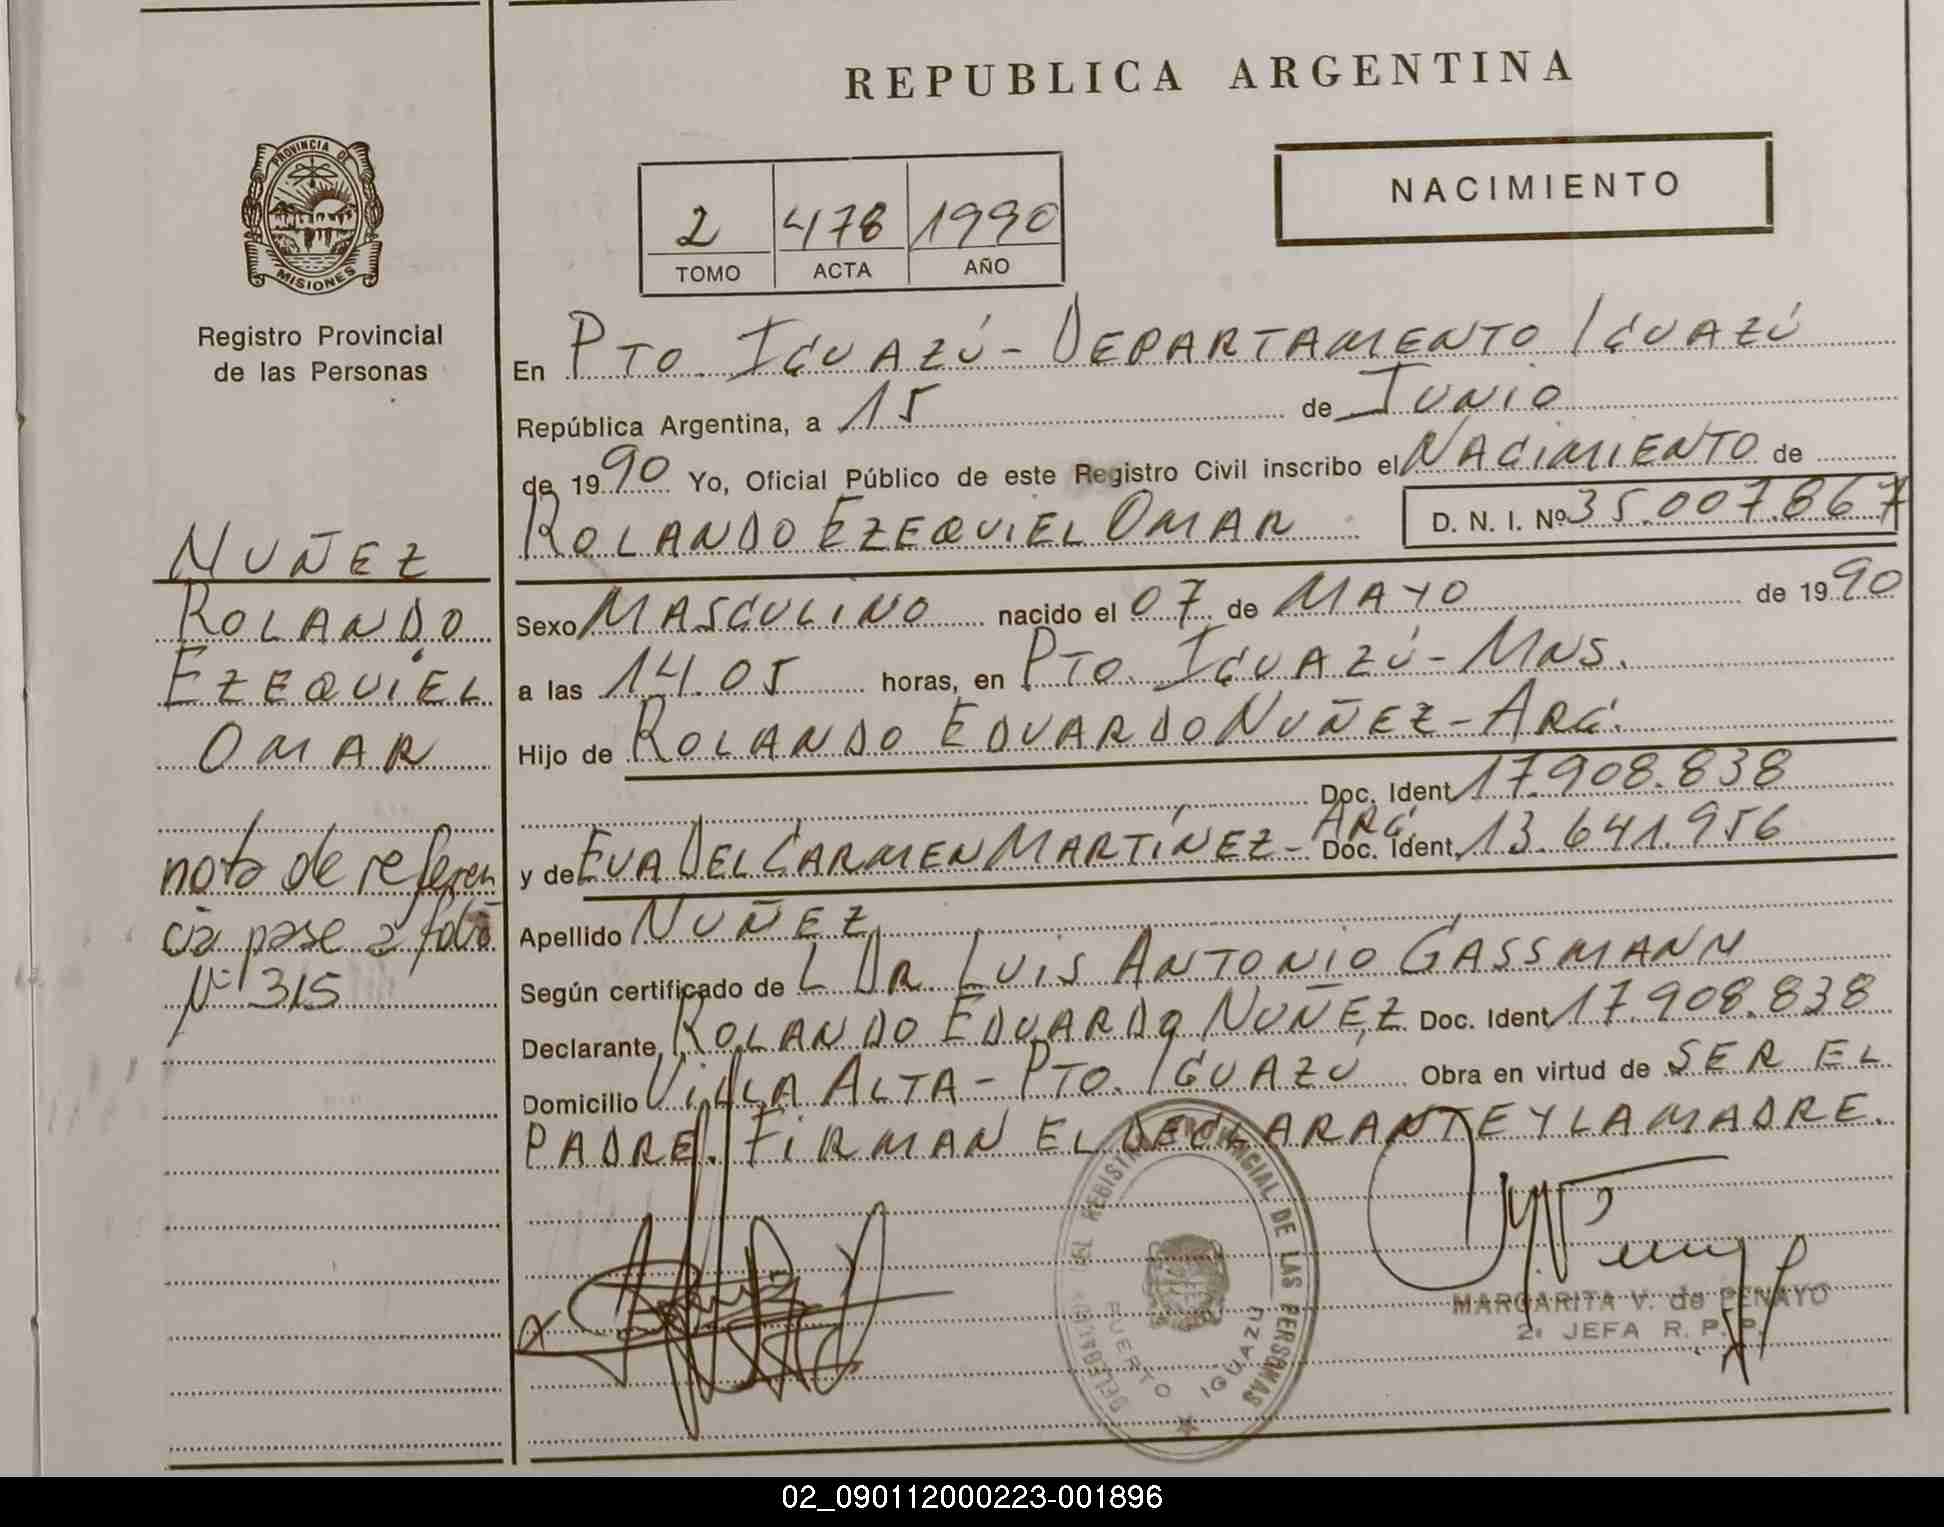 REPUBLICA ARGENTINA
PROVINCIA DE
MISIONES
Registro Provincial
de las Personas
2 478 1990
TOMO ACTA AÑO
NACIMIENTO
En PTO. IGUAZÚ - DEPARTAMENTO IGUAZÚ
República Argentina, a 15 de JUNIO
de 1990 Yo, Oficial Público de este Registro Civil inscribo el NACIMIENTO de
ROLANDO EZEQUIEL OMAR D. N. I. Nº 35.007.867
Sexo MASCULINO nacido el 07 de MAYO de 1990
a las 14.05 horas, en PTO. IGUAZÚ - MNS.
Hijo de ROLANDO EDUARDO NUÑEZ - ARG.
Doc. Ident. 17.908.838
y de EVA DEL CARMEN MARTÍNEZ - ARG. Doc. Ident. 13.641.956
Apellido NUÑEZ
Según certificado de L DR. LUIS ANTONIO GASSMANN
Declarante ROLANDO EDUARDO NUÑEZ Doc. Ident. 17.908.838
Domicilio VILLA ALTA - PTO. IGUAZU Obra en virtud de SER EL
PADRE. FIRMAN EL DECLARANTE Y LA MADRE.
NUÑEZ
ROLANDO
EZEQUIEL
OMAR
nota de referen
cia pase a folio
Nº 315
DEL REGISTRO PROVINCIAL DE LAS PERSONAS
PUERTO IGUAZU
MARGARITA V. de PENAYO
2ª JEFA R. P. P.
02_090112000223-001896